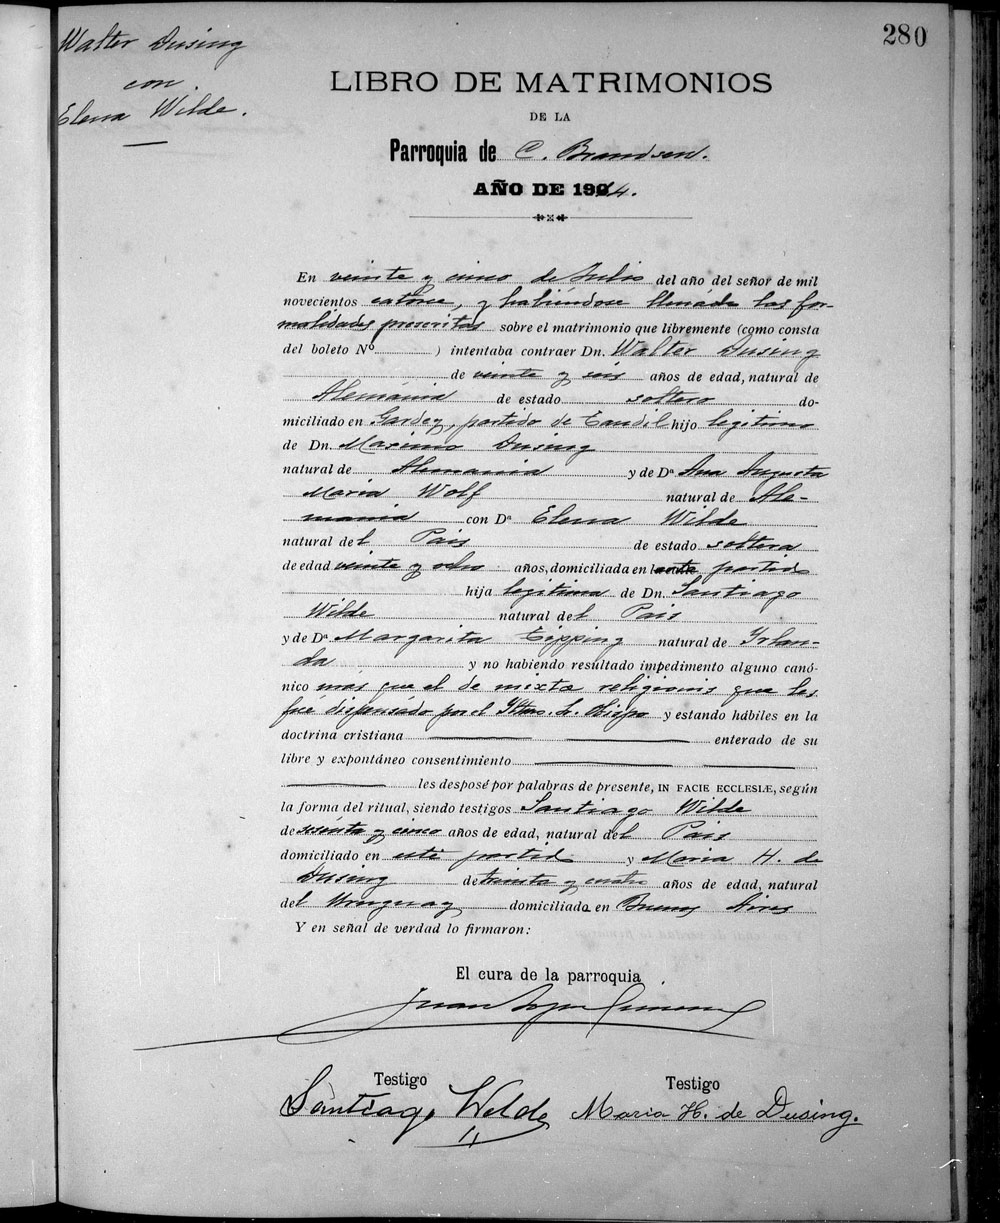 280
Walter Dusing
con
Elena Wilde.
LIBRO DE MATRIMONIOS
DE LA
Parroquia de C. Brandsen.
AÑO DE 1914.
En veinte y cinco de Julio del año del señor de mil
novecientos catorce, y habiéndose llenado las for-
malidades prescritas sobre el matrimonio que libremente (como consta
del boleto Nº ) intentaba contraer Dn. Walter Dusing
de veinte y seis años de edad, natural de
Alemania de estado soltero do-
miciliado en Gardey, partido de Tandil hijo legitimo
de Dn. Maximo Dusing
natural de Alemania y de Dª Ana Augusta
Maria Wolf natural de Ale-
mania con Dª Elena Wilde
natural del Pais de estado soltera
de edad veinte y ocho años, domiciliada en partido
hija legitima de Dn. Santiago
Wilde natural del Pais
y de Dª Margarita Tipping natural de Yrlan-
da y no habiendo resultado impedimento alguno canó-
nico más que el de mixta religionis que les
fue dispensado por el Obispo y estando hábiles en la
doctrina cristiana enterado de su
libre y expontáneo consentimiento
les desposé por palabras de presente, IN FACIE ECCLESIÆ, según
la forma del ritual, siendo testigos Santiago Wilde
de sesenta y cinco años de edad, natural del Pais
domiciliado en este partido y Maria H. de
Dusing de treinta y cuatro años de edad, natural
del Uruguay domiciliada en Buenos Aires
Y en señal de verdad lo firmaron:
El cura de la parroquia
Juan
Testigo
Testigo
Santiago Wilde
Maria H. de Dusing.